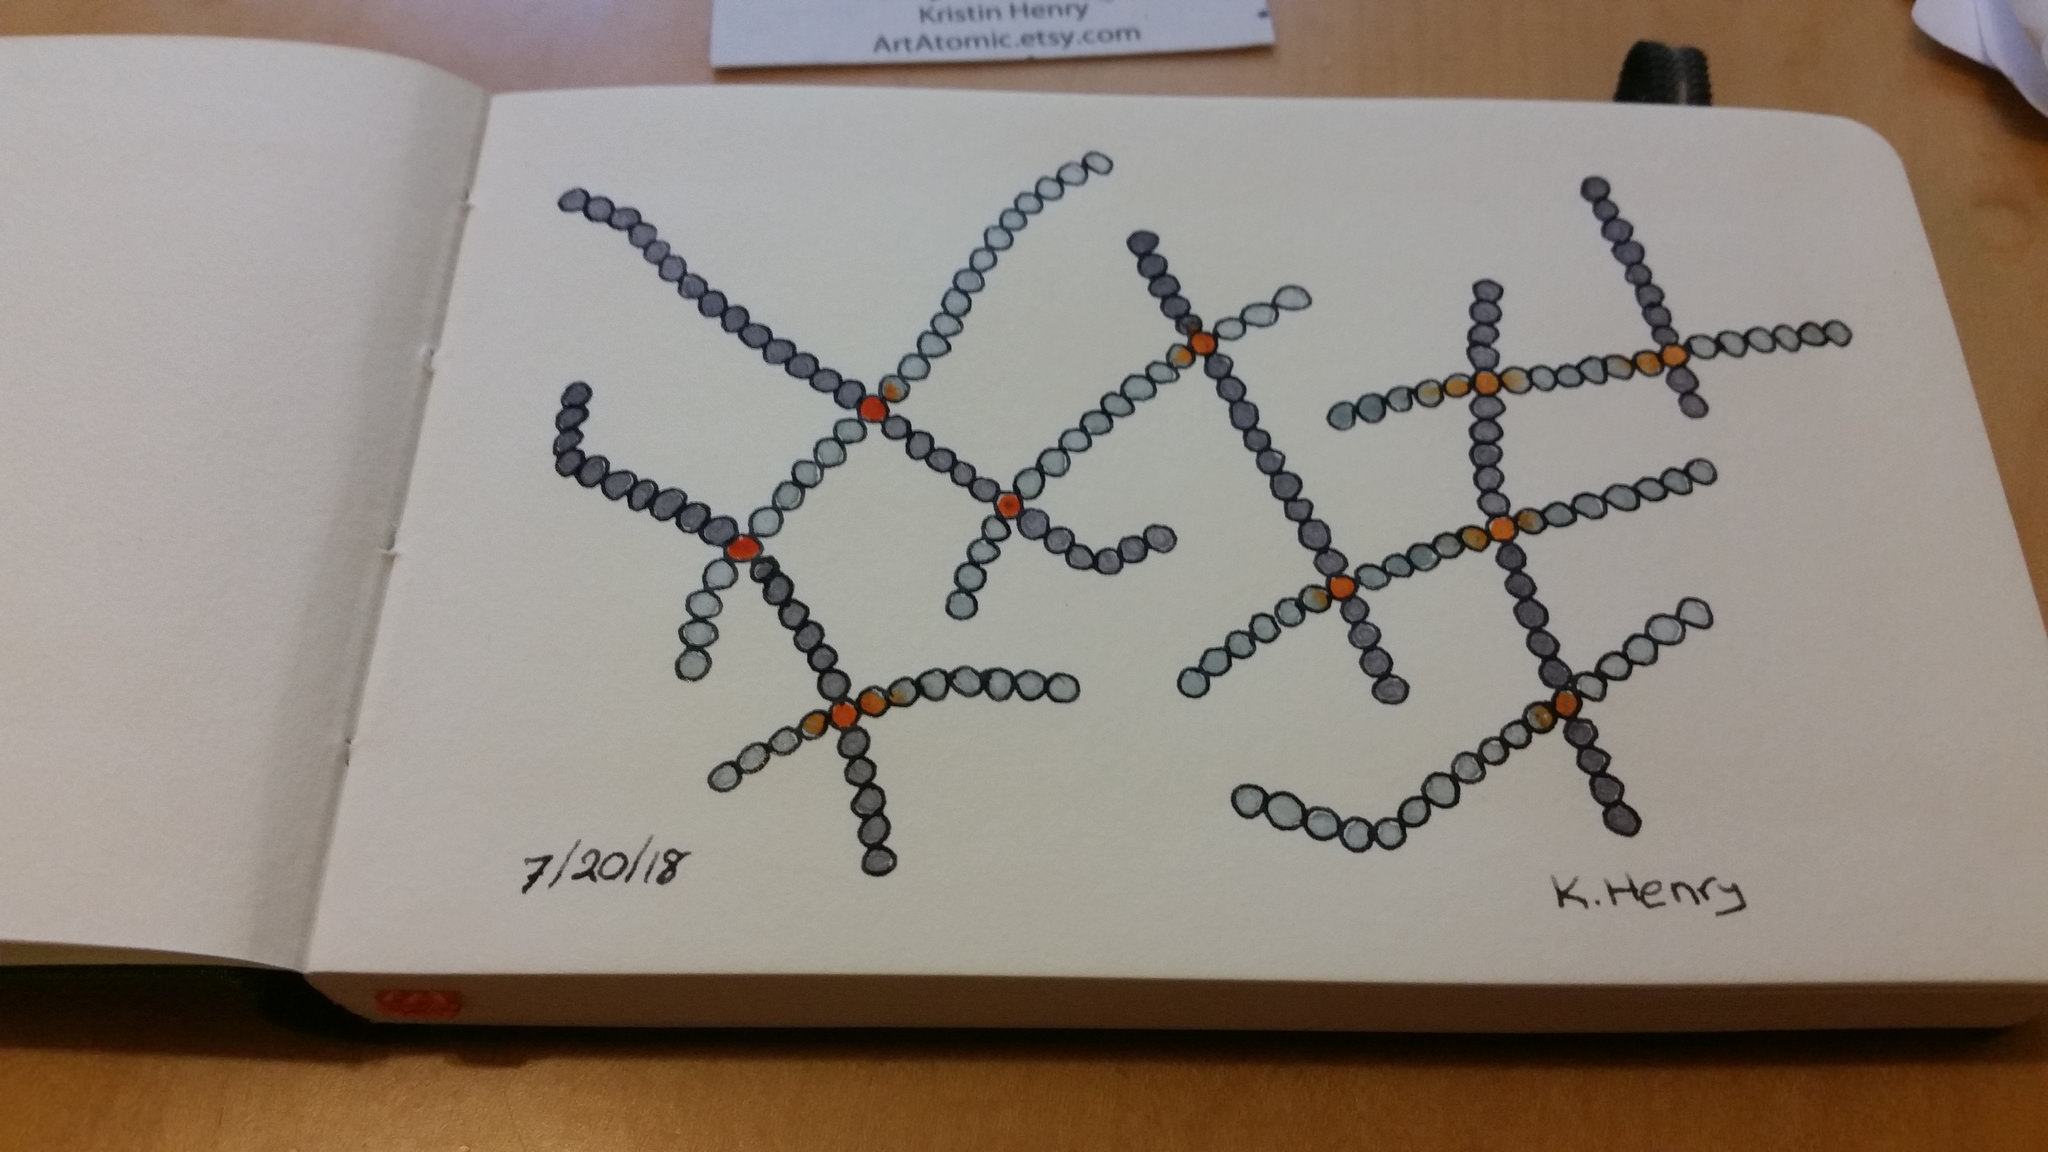 Kristin Henry
ArtAtomic.etsy.com
7/20/18
K.Henry